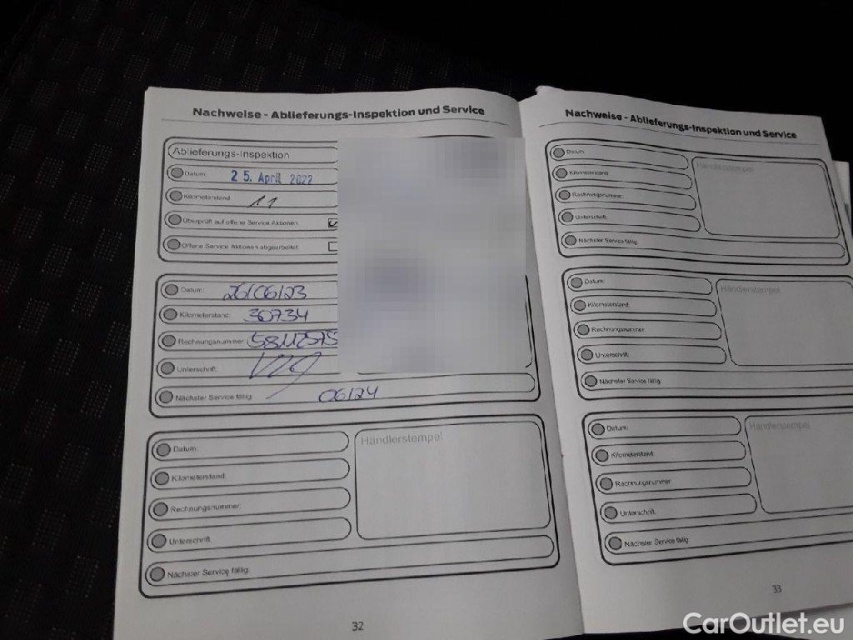 Nachweise - Ablieferungs-Inspektion und Service
Ablieferungs-Inspektion
Datum: 25. April 2022
Kilometerstand: 11
Überprüft auf offene Service Aktionen
Offene Service Aktionen abgearbeitet
Datum: 26/06/23
Kilometerstand: 30734
Rechnungsnummer:
Unterschrift:
Nächster Service fällig: 06/24
Datum:
Händlerstempel
Kilometerstand:
Rechnungsnummer:
Unterschrift:
Nächster Service fällig:
32
Nachweise - Ablieferungs-Inspektion und Service
Datum:
Händlerstempel
Kilometerstand:
Rechnungsnummer:
Unterschrift:
Nächster Service fällig:
Datum:
Händlerstempel
Kilometerstand:
Rechnungsnummer:
Unterschrift:
Nächster Service fällig:
Datum:
Händlerstempel
Kilometerstand:
Rechnungsnummer:
Unterschrift:
Nächster Service fällig:
33
CarOutlet.eu